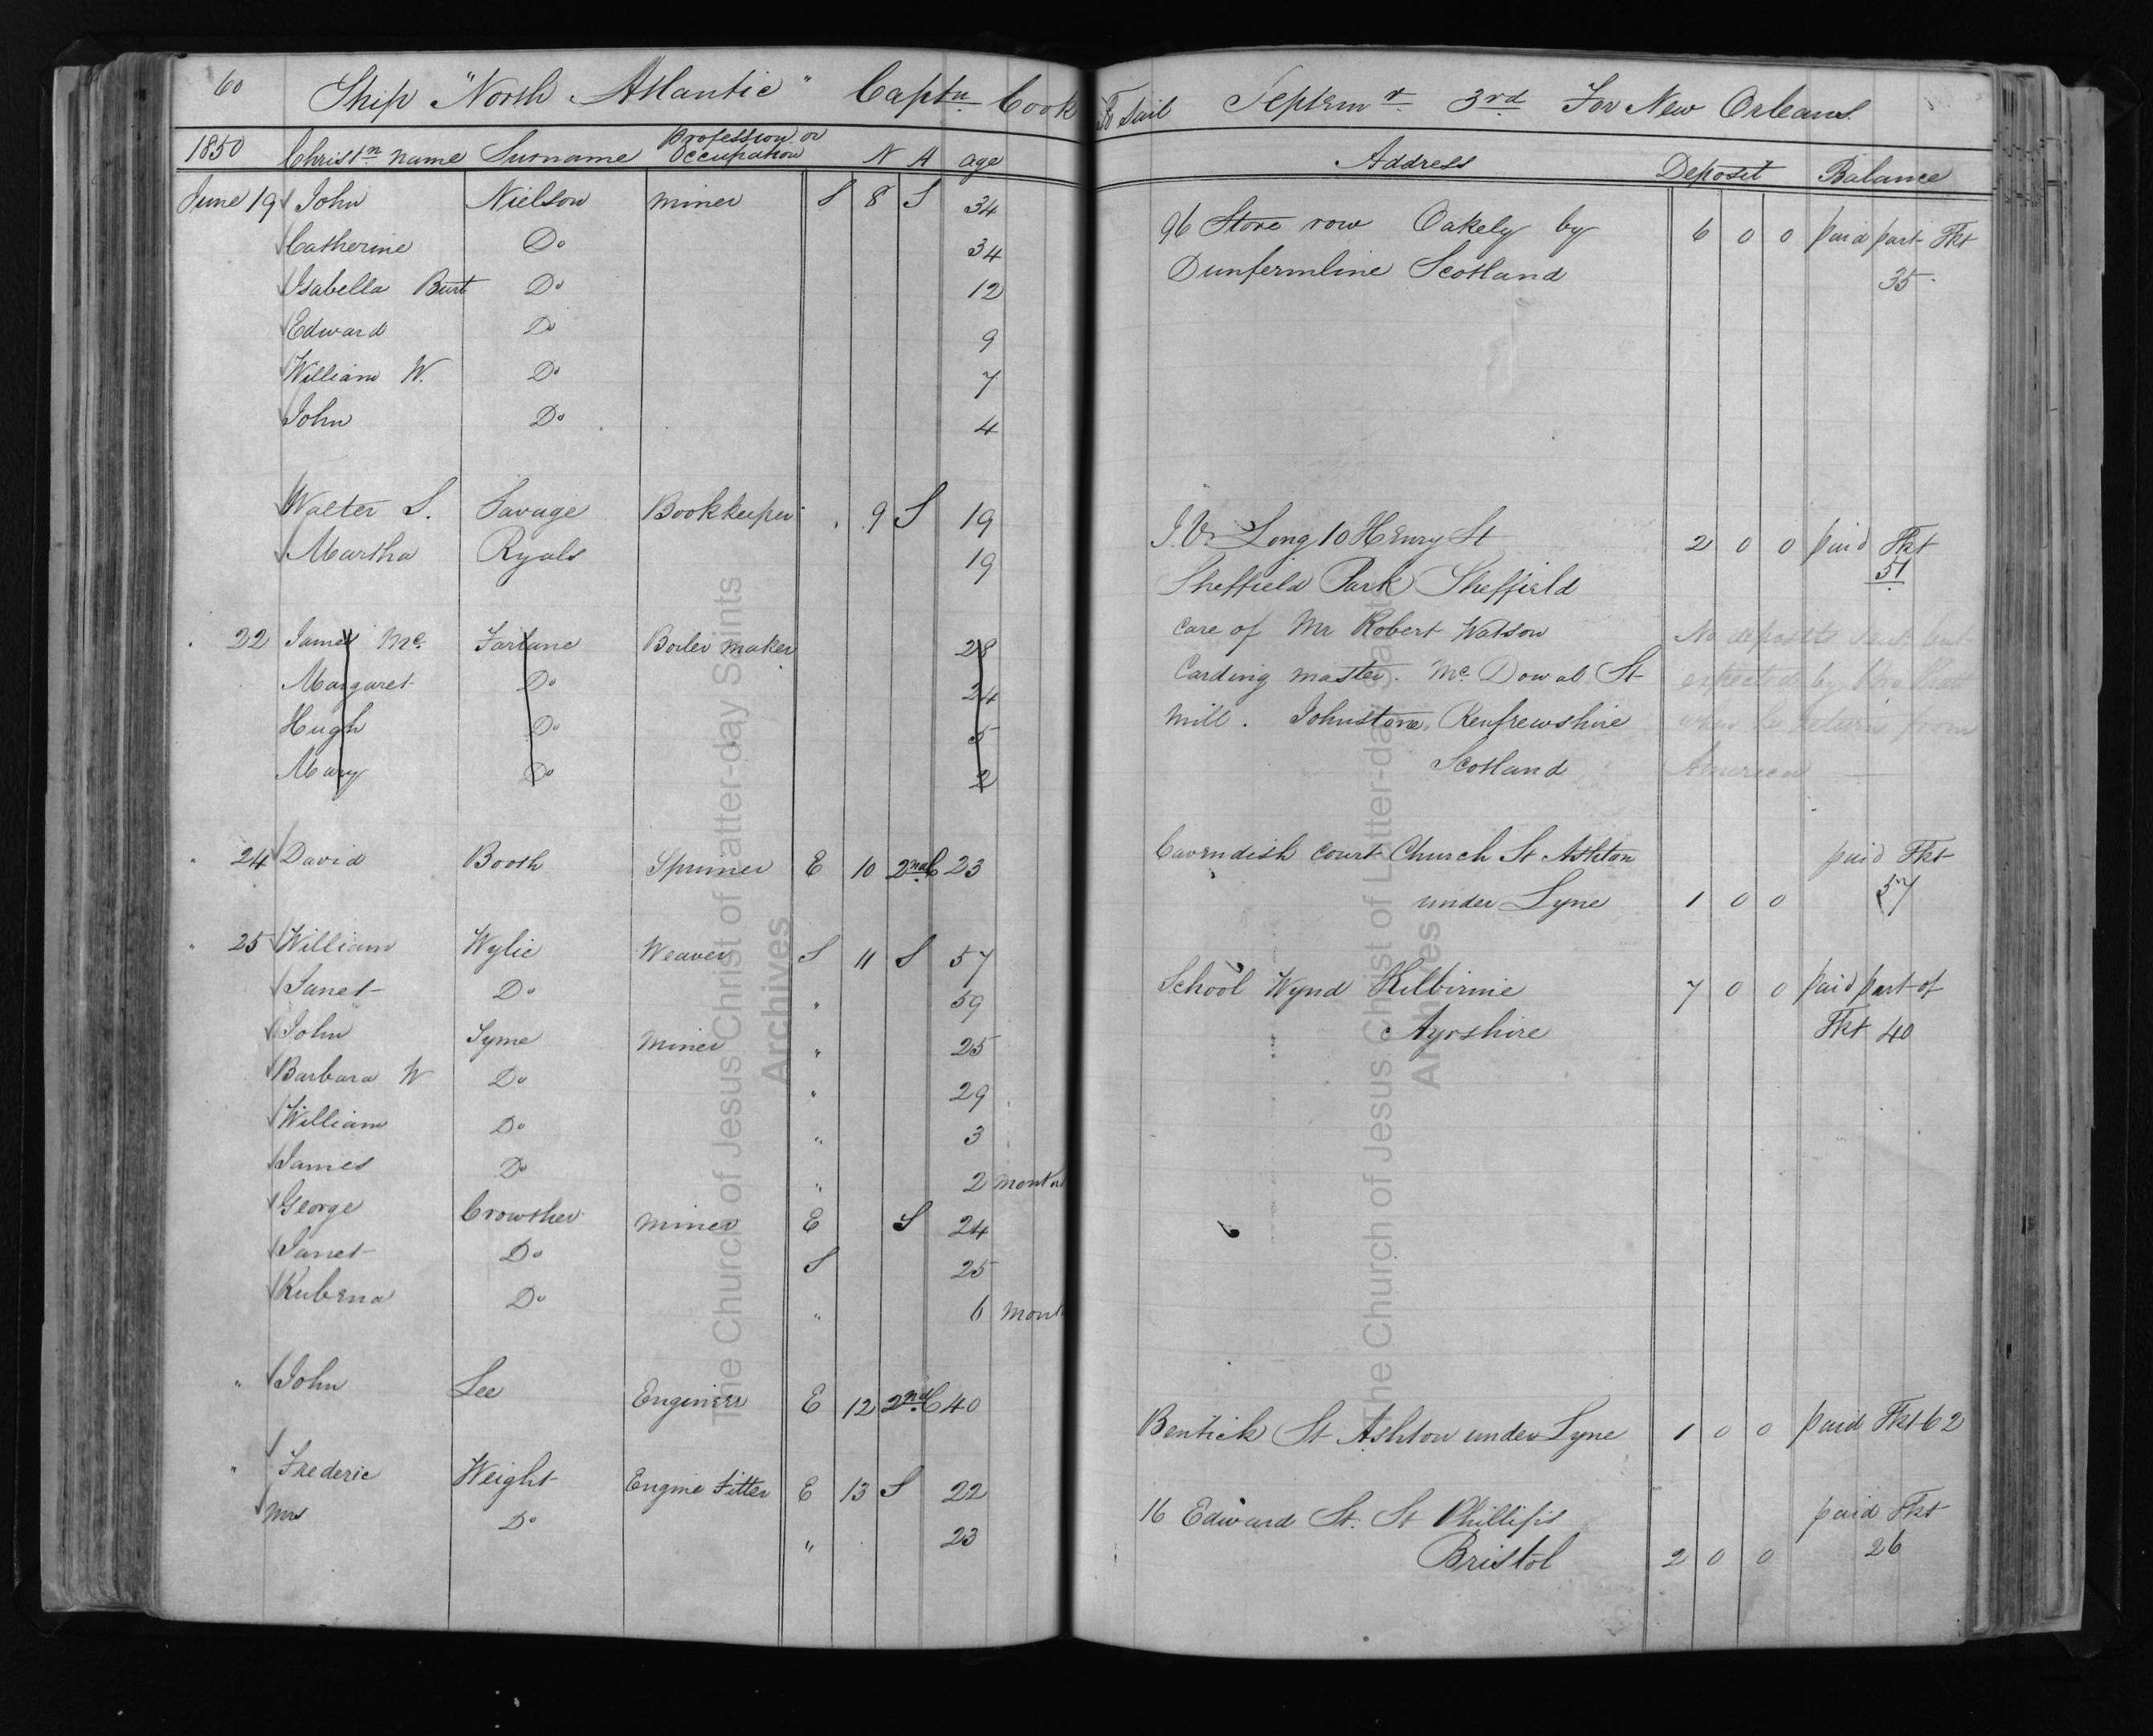 60 Ship "North Atlantic" Captn Cook To Sail Septemr 3rd For New Orleans.
1850 Christn name Surname Profession or Occupation N A age Address Deposit Balance
June 19 John Nielson miner S 8 S 34 96 Store row Oakely by 6 0 0 paid part Tkt
Catherine Do 34 Dunfermline Scotland 35
Isabella Burt Do 12
Edward Do 9
William W. Do 7
John Do 4
Walter S. Savage Bookkeeper 9 S 19 Long 10 Henry St 2 0 0 paid Tkt
Martha Ryals 19 Sheffield Park Sheffield 51
22 James Mc Farlane Boiler maker 28 Care of Mr Robert Watson No deposit sent, but
Margaret Do 24 Carding master. Mc Dowal St expected by
Hugh Do 5 Mill. Johnstone, Renfrewshire when he returns from
Mary Do 2 Scotland America
24 David Booth Spinner E 10 2nd C 23 Cavendish Court Church St Ashton paid Tkt
under Lyne 1 0 0 57
25 William Wylie Weaver S 11 S 57 School Wynd Kilbirnie 7 0 0 paid part of
Janet Do " 59 Ayrshire Tkt 40
John Syme Miner " 25
Barbara W Do " 29
William Do " 3
James Do " 2 months
George Crowther Miner E S 24
Janet Do S 25
Do " 6 mont
" John Lee Engineer E 12 2nd C 40 Bentick St Ashton under Lyne 1 0 0 paid Tkt 62
" Frederic Weight Engine Fitter E 13 S 22 16 Edward St. St Phillips paid Tkt
Mrs Do " 23 Bristol 2 0 0 26
The Church of Jesus Christ of Latter-day Saints
Archives
The Church of Jesus Christ of Latter-day Saints
Archives